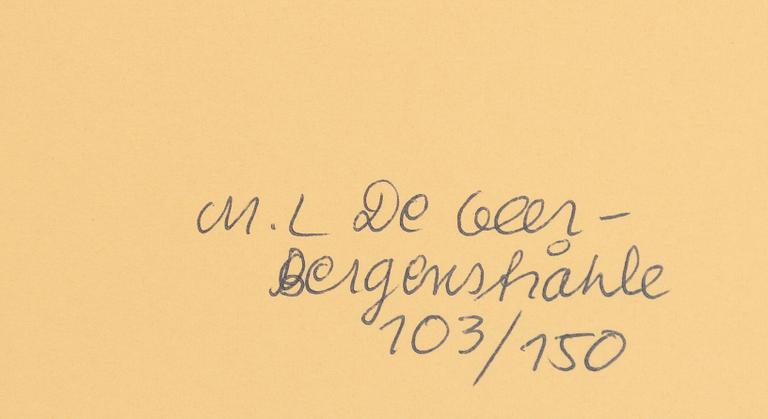 M.L De Geer-
Bergenstråhle
103/150